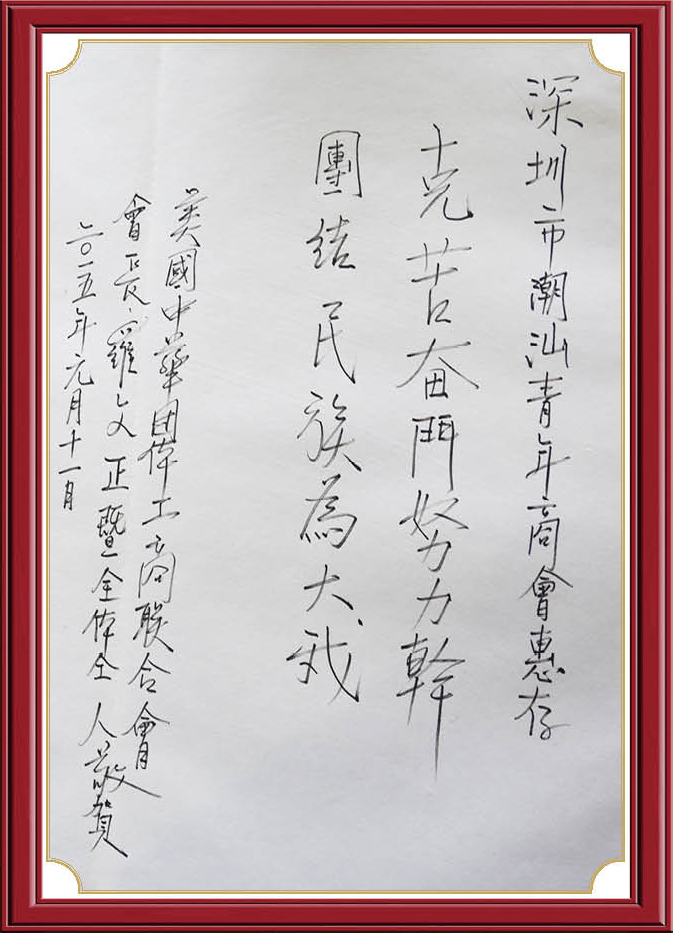 深圳市潮汕青年商會惠存
克苦奋鬥努力幹
團結民族為大我
美國中華团体工商联合會
會長羅文正暨全体仝人敬賀
二〇一五年元月十一日